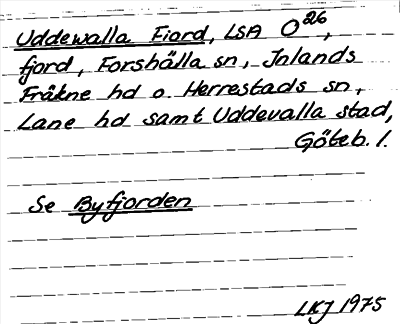 Uddewalla Fiord, LSA O26,
fjord, Forshälla sn, Inlands
Fräkne hd o. Herrestads sn,
Lane hd samt Uddevalla stad,
Göteb. l.
Se Byfjorden
LKJ 1975